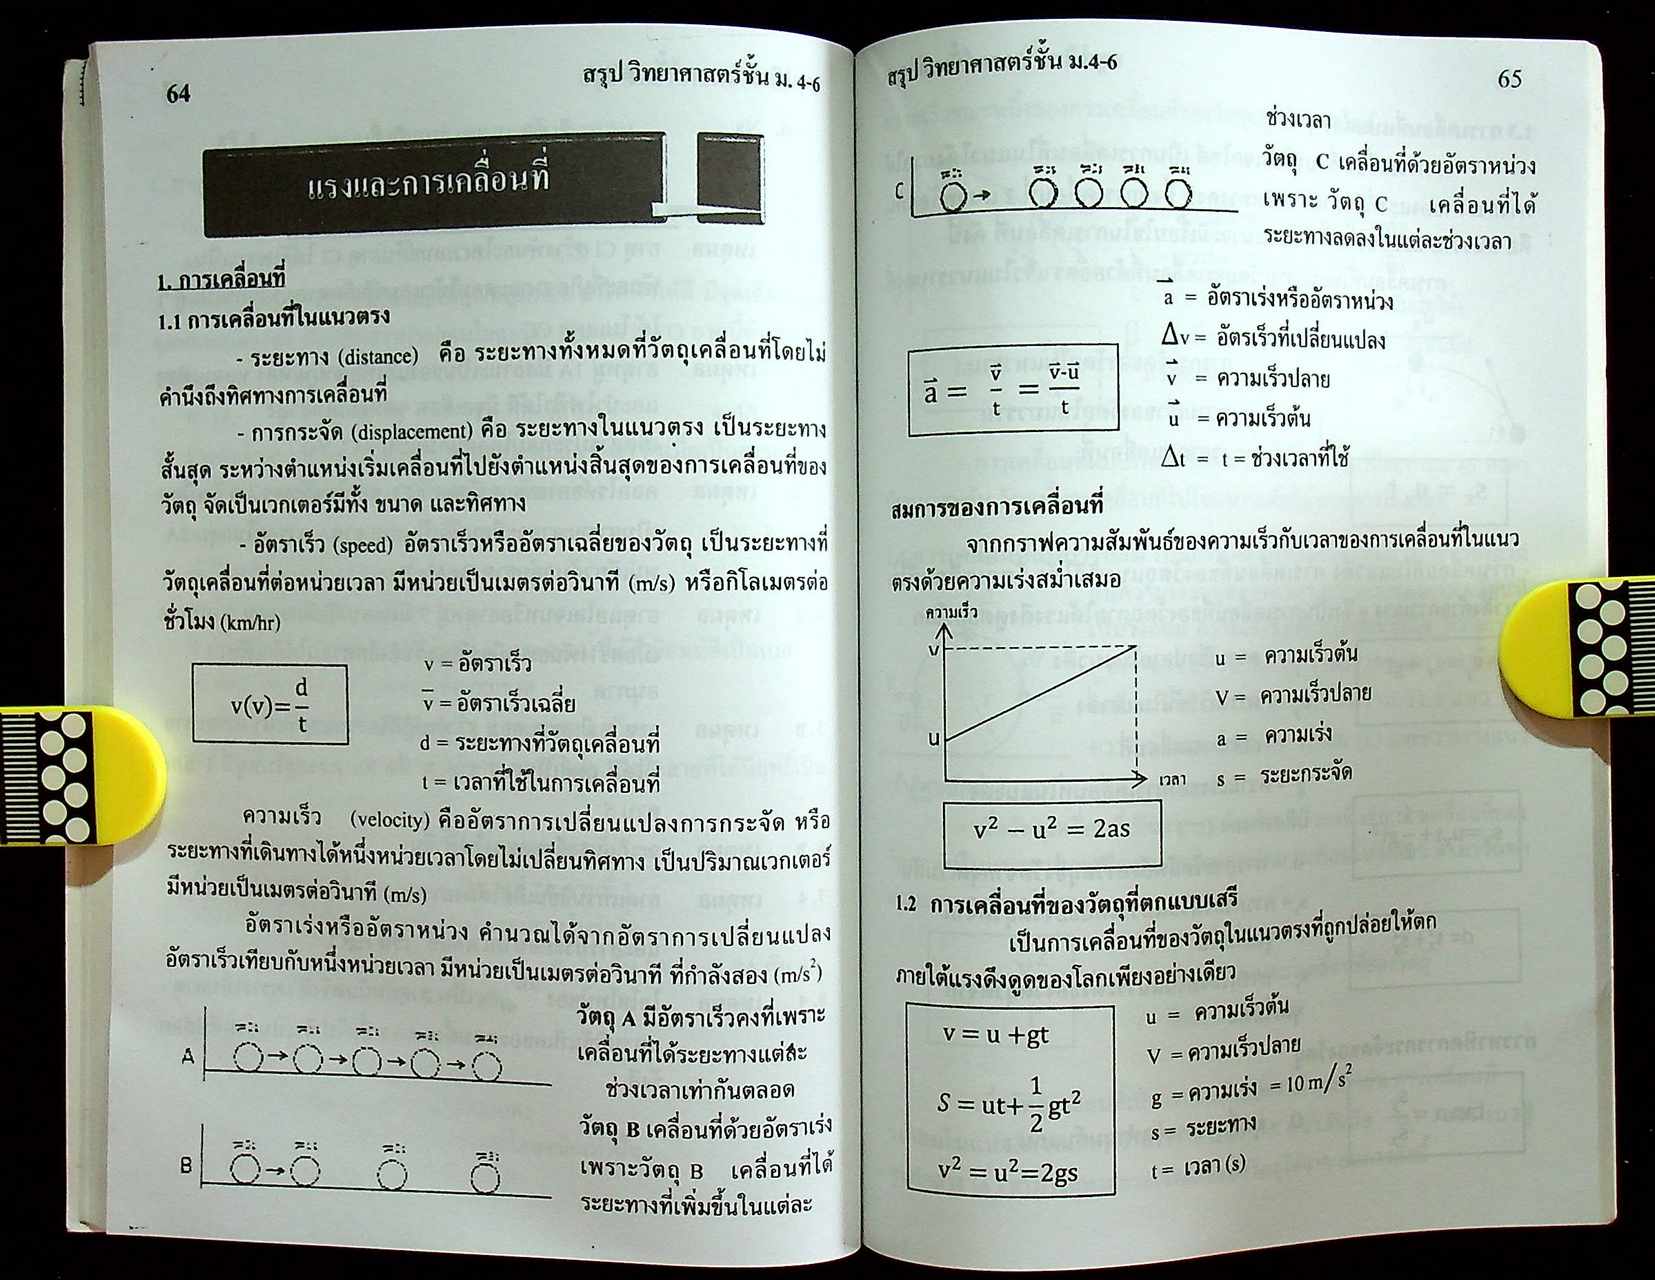 64
สรุป วิทยาศาสตร์ชั้น ม. 4-6
แรงและการเคลื่อนที่
1. การเคลื่อนที่
1.1 การเคลื่อนที่ในแนวตรง
- ระยะทาง (distance) คือ ระยะทางทั้งหมดที่วัตถุเคลื่อนที่โดยไม่
คำนึงถึงทิศทางการเคลื่อนที่
- การกระจัด (displacement) คือ ระยะทางในแนวตรง เป็นระยะทาง
สั้นสุด ระหว่างตำแหน่งเริ่มเคลื่อนที่ไปยังตำแหน่งสิ้นสุดของการเคลื่อนที่ของ
วัตถุ จัดเป็นเวกเตอร์มีทั้ง ขนาด และทิศทาง
- อัตราเร็ว (speed) อัตราเร็วหรืออัตราเฉลี่ยของวัตถุ เป็นระยะทางที่
วัตถุเคลื่อนที่ต่อหน่วยเวลา มีหน่วยเป็นเมตรต่อวินาที (m/s) หรือกิโลเมตรต่อ
ชั่วโมง (km/hr)
v(v)=d/t
v = อัตราเร็ว
v̅ = อัตราเร็วเฉลี่ย
d = ระยะทางที่วัตถุเคลื่อนที่
t = เวลาที่ใช้ในการเคลื่อนที่
ความเร็ว (velocity) คืออัตราการเปลี่ยนแปลงการกระจัด หรือ
ระยะทางที่เดินทางได้หนึ่งหน่วยเวลาโดยไม่เปลี่ยนทิศทาง เป็นปริมาณเวกเตอร์
มีหน่วยเป็นเมตรต่อวินาที (m/s)
อัตราเร่งหรืออัตราหน่วง คำนวณได้จากอัตราการเปลี่ยนแปลง
อัตราเร็วเทียบกับหนึ่งหน่วยเวลา มีหน่วยเป็นเมตรต่อวินาที ที่กำลังสอง (m/s²)
A
วัตถุ A มีอัตราเร็วคงที่เพราะ
เคลื่อนที่ได้ระยะทางแต่ละ
ช่วงเวลาเท่ากันตลอด
B
วัตถุ B เคลื่อนที่ด้วยอัตราเร่ง
เพราะวัตถุ B เคลื่อนที่ได้
ระยะทางที่เพิ่มขึ้นในแต่ละ
สรุป วิทยาศาสตร์ชั้น ม.4-6
65
ช่วงเวลา
C
วัตถุ C เคลื่อนที่ด้วยอัตราหน่วง
เพราะ วัตถุ C เคลื่อนที่ได้
ระยะทางลดลงในแต่ละช่วงเวลา
a⃗ = v⃗/t = v⃗-u⃗/t
a⃗ = อัตราเร่งหรืออัตราหน่วง
Δv = อัตรเร็วที่เปลี่ยนแปลง
v⃗ = ความเร็วปลาย
u⃗ = ความเร็วต้น
Δt = t = ช่วงเวลาที่ใช้
สมการของการเคลื่อนที่
จากกราฟความสัมพันธ์ของความเร็วกับเวลาของการเคลื่อนที่ในแนว
ตรงด้วยความเร่งสม่ำเสมอ
ความเร็ว
v
u
เวลา
u = ความเร็วต้น
V = ความเร็วปลาย
a = ความเร่ง
s = ระยะกระจัด
v² − u² = 2as
1.2 การเคลื่อนที่ของวัตถุที่ตกแบบเสรี
เป็นการเคลื่อนที่ของวัตถุในแนวตรงที่ถูกปล่อยให้ตก
ภายใต้แรงดึงดูดของโลกเพียงอย่างเดียว
v = u +gt
S = ut+1/2gt²
v² = u²=2gs
u = ความเร็วต้น
V = ความเร็วปลาย
g = ความเร่ง = 10 m/s²
s = ระยะทาง
t = เวลา (s)